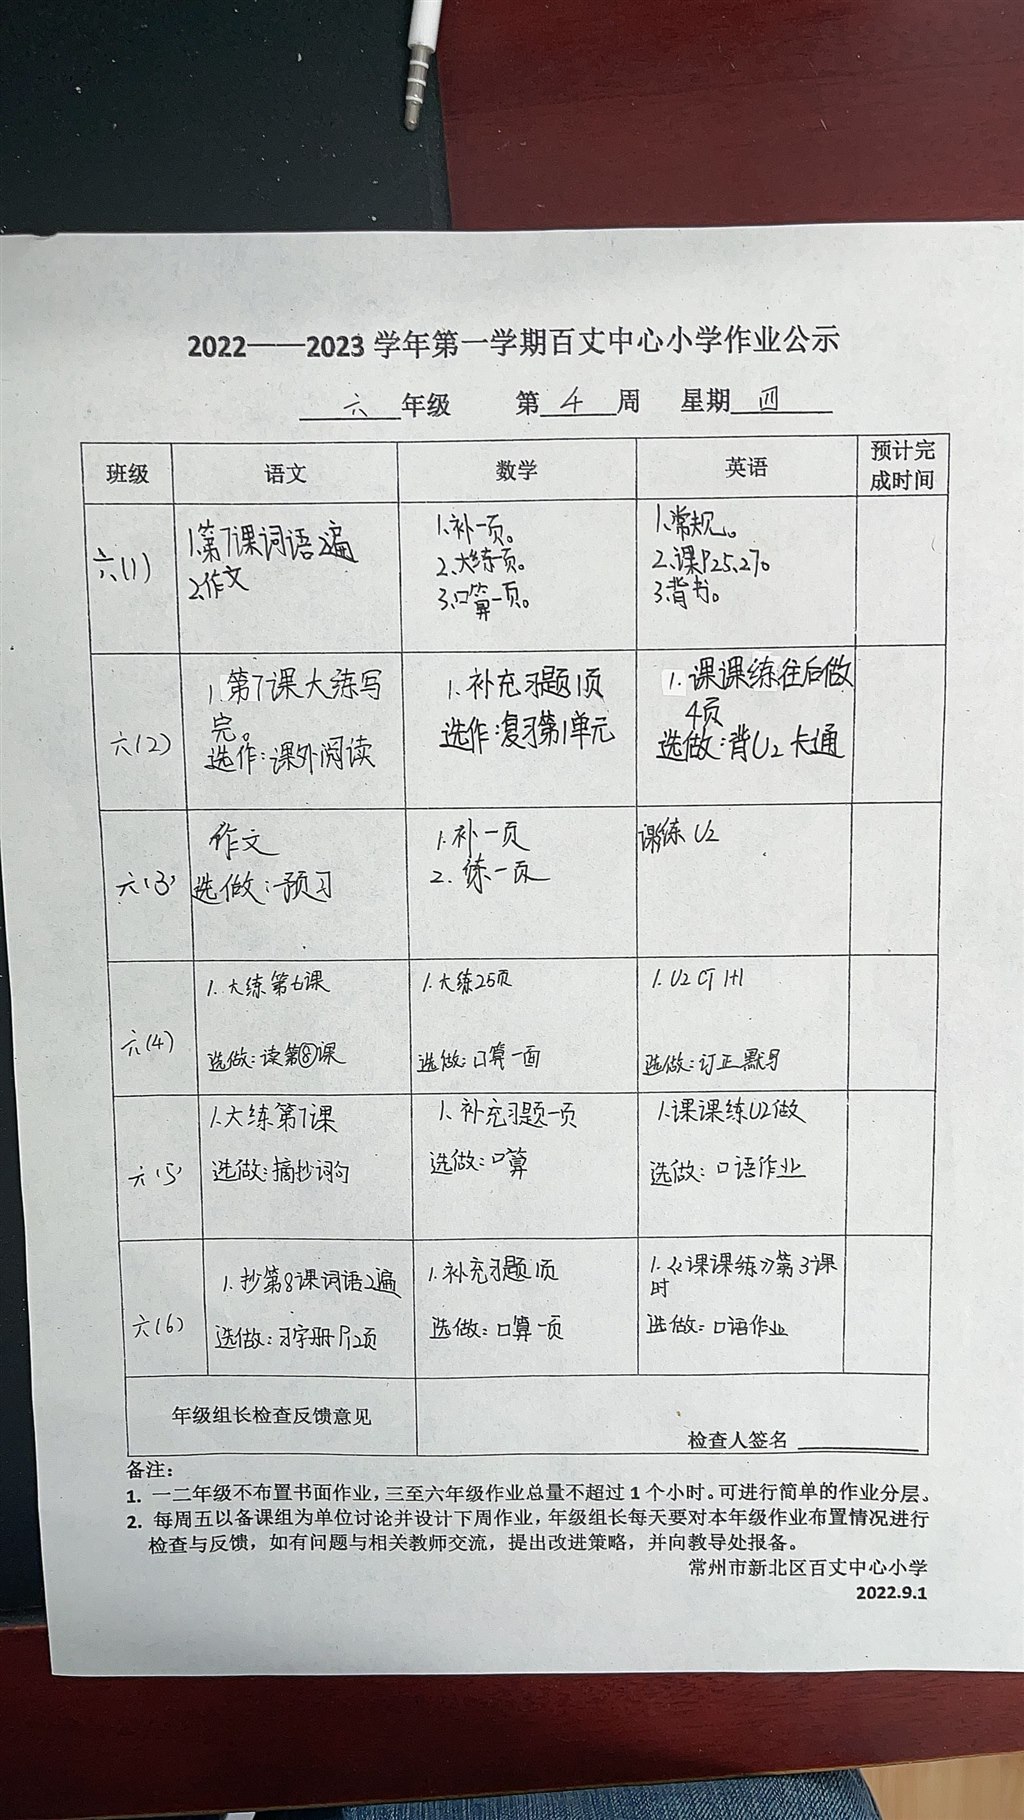 2022——2023 学年第一学期百丈中心小学作业公示
六年级 第4周 星期四
班级 语文 数学 英语 预计完
成时间
六(1)
1.第7课词语2遍
2.作文
1.补一页。
2.大练一页。
3.口算一页。
1.常规。
2.课P25、27。
3.背书。
六(2)
1.第7课大练写
完。
选作:课外阅读
1.补充习题1页
选作:复习第1单元
1.课课练往后做
4页
选做:背U2卡通
六(3)
作文
选做:预习
1.补一页
2.练一页
课练U2
六(4)
1.大练第6课
选做:读第⑧课
1.大练25页
选做:口算一面
1.U2
选做:订正默写
六(5)
1.大练第7课
选做:摘抄词句
1.补充习题一页
选做:口算
1.课课练U2做
选做:口语作业
六(6)
1.抄第8课词语2遍
选做:习字册P12页
1.补充习题1页
选做:口算一页
1.《课课练》第3课
时
选做:口语作业
年级组长检查反馈意见
检查人签名
备注:
1. 一二年级不布置书面作业,三至六年级作业总量不超过1个小时。可进行简单的作业分层。
2. 每周五以备课组为单位讨论并设计下周作业,年级组长每天要对本年级作业布置情况进行
检查与反馈,如有问题与相关教师交流,提出改进策略,并向教导处报备。
常州市新北区百丈中心小学
2022.9.1